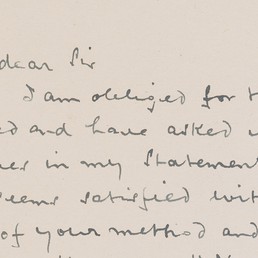 dear Sir
I am obliged for t
ed and have asked
in my Statemen
seems satisfied wit
of your method and